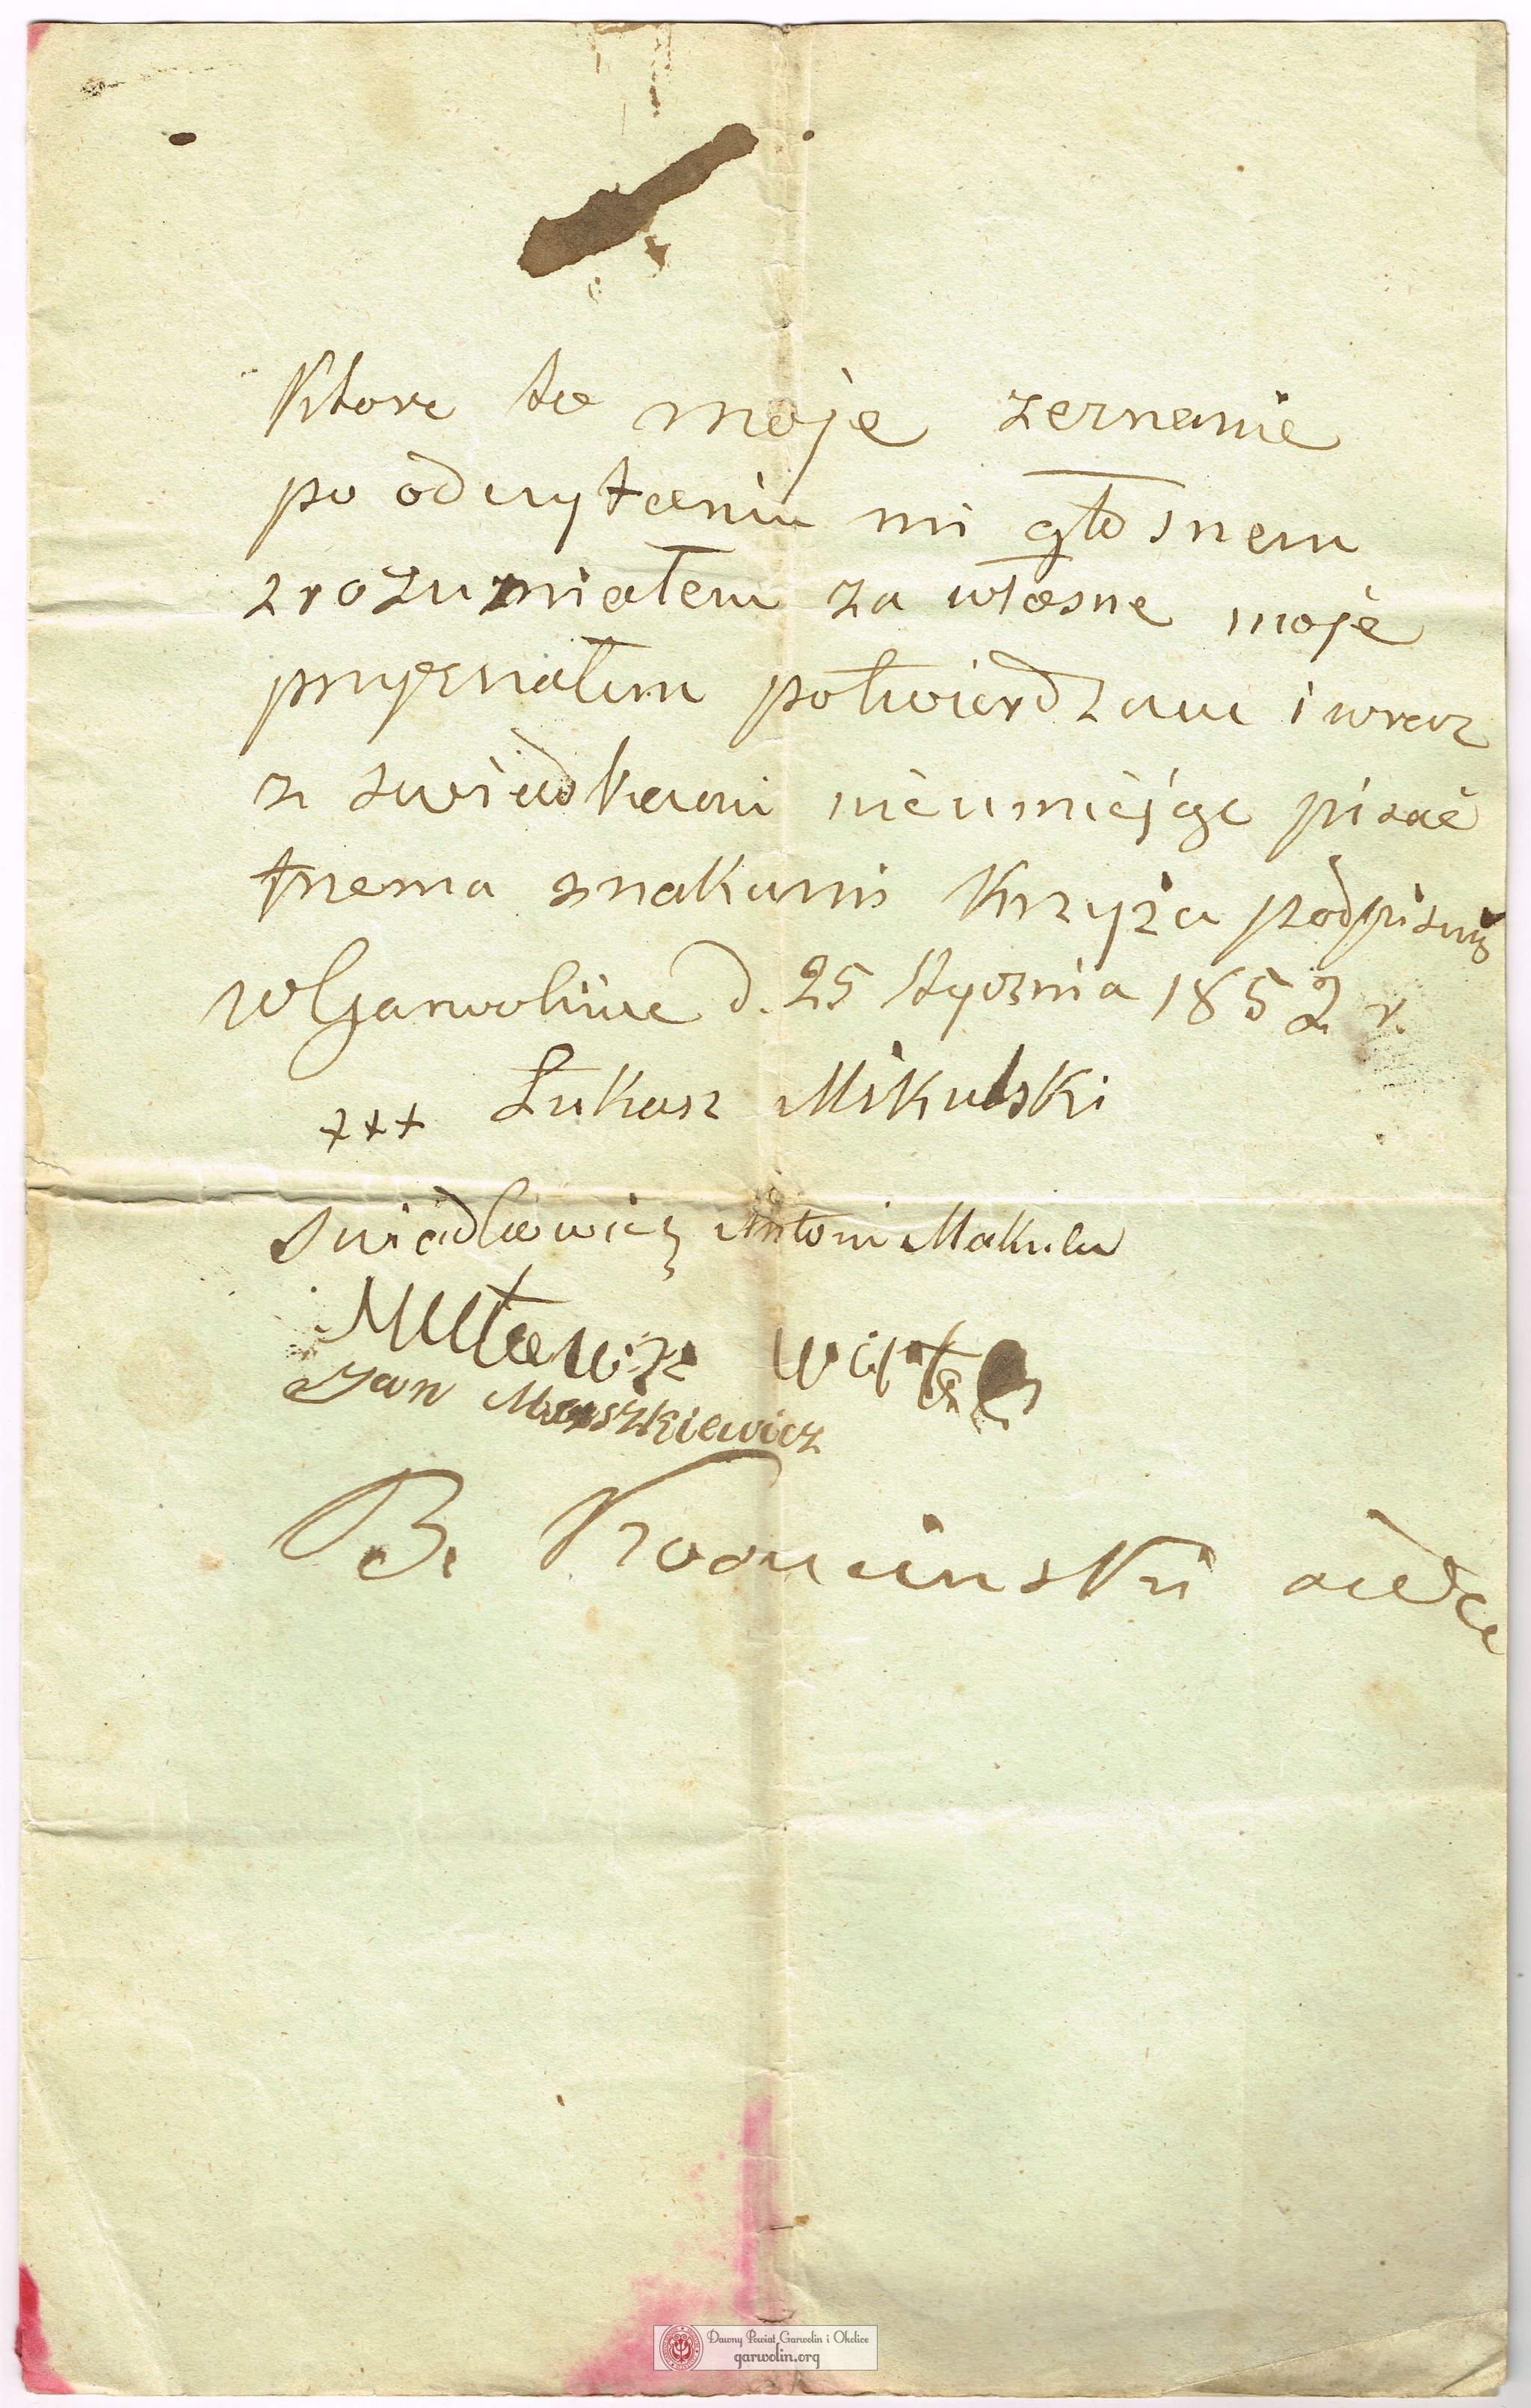 Ktore to moje zeznanie
po odczytaniu mi głosnem
zrozumiałem za własne moje
przyznałem potwierdzam i wraz
z swiadkami nieumiejąc pisać
trzema znakami Krzyża podpisuię
w Garwolinie d. 25 stycznia 1852 r.
+++ Łukasz Mikulski
Antoni Makula
Jan
B.
Dawny Powiat Garwolin i Okolice
garwolin.org